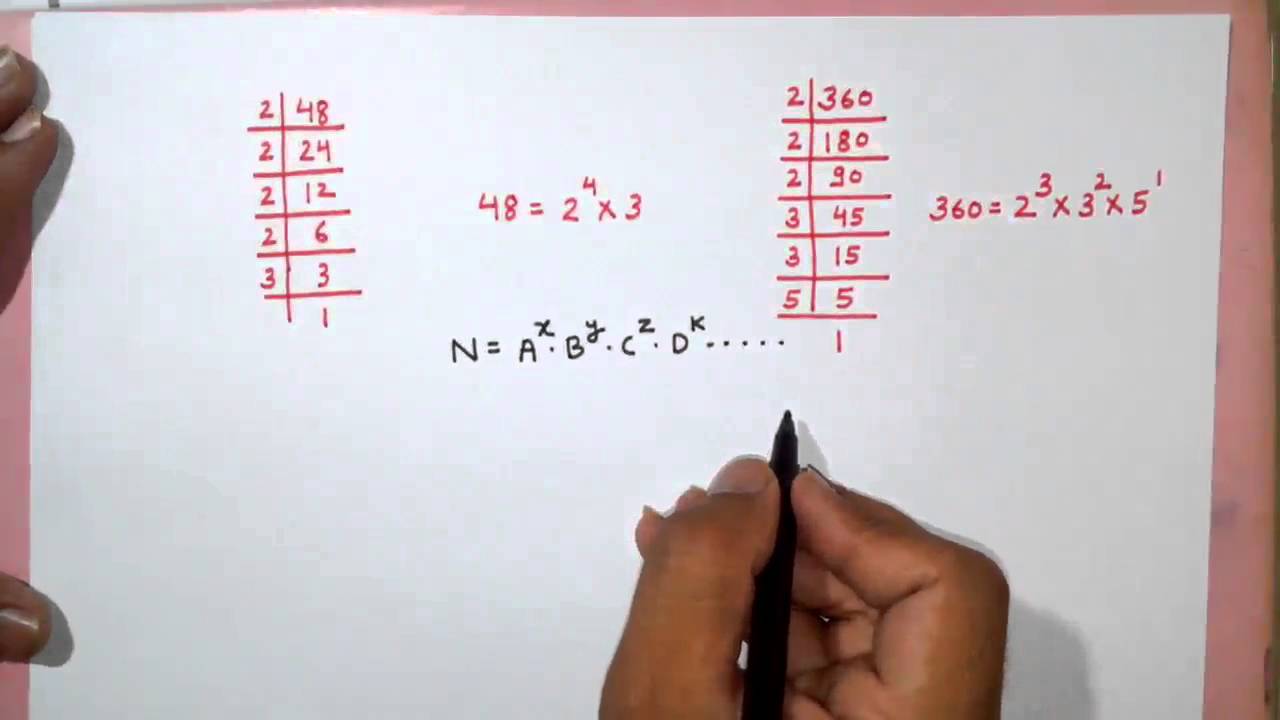 2 | 48
2 | 24
2 | 12
2 | 6
3 | 3
1
48 = 2⁴ × 3
2 | 360
2 | 180
2 | 90
3 | 45
3 | 15
5 | 5
1
360 = 2³ × 3² × 5¹
N = Aˣ · Bʸ · Cᶻ · Dᴷ . . . . .